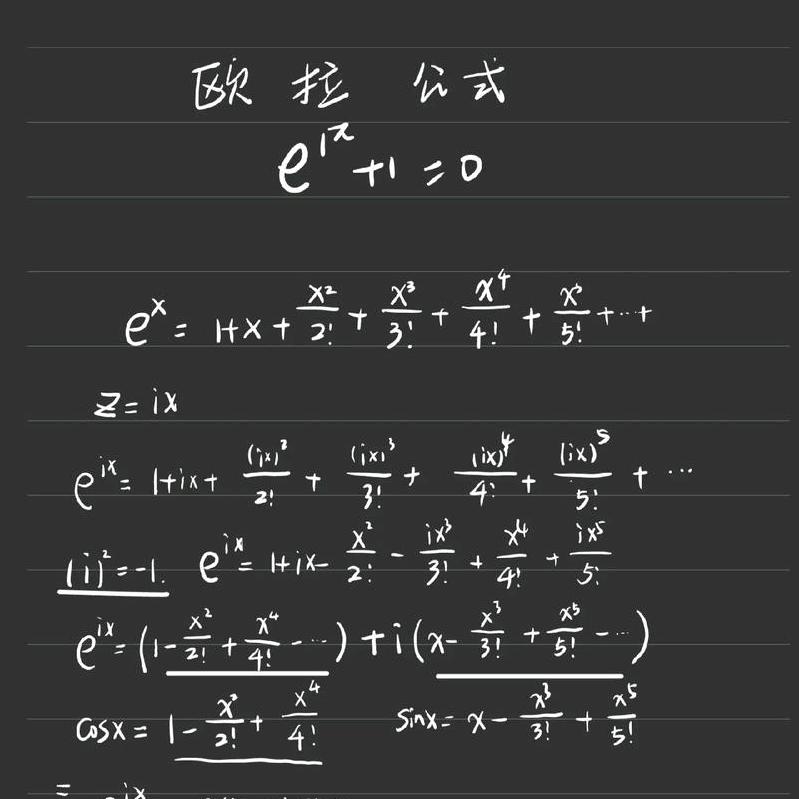 欧拉公式
e^{iπ}+1=0
e^x = 1+x+\frac{x^2}{2!}+\frac{x^3}{3!}+\frac{x^4}{4!}+\frac{x^5}{5!}+⋯+
z=ix
e^{ix}=1+ix+\frac{(ix)^2}{2!}+\frac{(ix)^3}{3!}+\frac{(ix)^4}{4!}+\frac{(ix)^5}{5!}+⋯
(i)^2=-1. e^{ix}=1+ix-\frac{x^2}{2!}-\frac{ix^3}{3!}+\frac{x^4}{4!}+\frac{ix^5}{5!}
e^{ix}=(1-\frac{x^2}{2!}+\frac{x^4}{4!}-⋯)+i(x-\frac{x^3}{3!}+\frac{x^5}{5!}-⋯)
cosx=1-\frac{x^2}{2!}+\frac{x^4}{4!} sinx=x-\frac{x^3}{3!}+\frac{x^5}{5!}